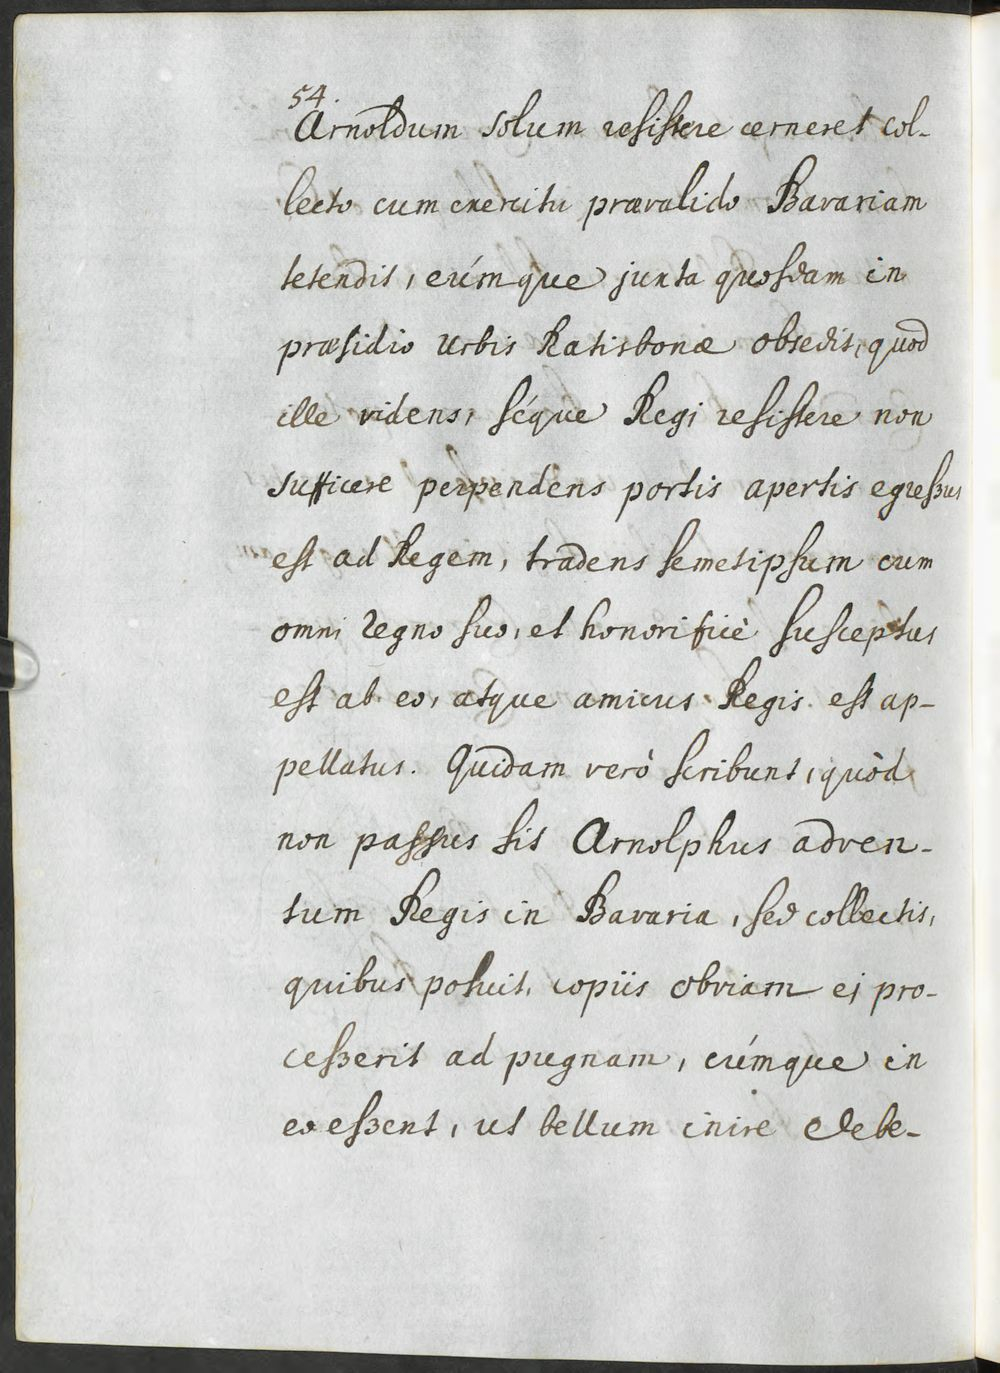 54.
Arnoldum solum resistere cerneret col-
lecto cum exercitu prævalido Bavariam
tetendit, eúmque juxta quosdam in
præsidio Urbis Ratisbonæ obsedit, quod
ille videns, séque Regi resistere non
sufficere perpendens portis apertis egressus
est ad Regem, tradens semetipsum cum
omni Regno suo, et honorificè susceptus
est ab eo, atque amicus Regis est ap-
pellatus. Quidam verò scribunt, quòd
non passus sit Arnolphus adven-
tum Regis in Bavaria, sed collectis,
quibus potuit, copiis obviam ei pro-
cesserit ad pugnam, cúmque in
eo essent, ut bellum inire debe-